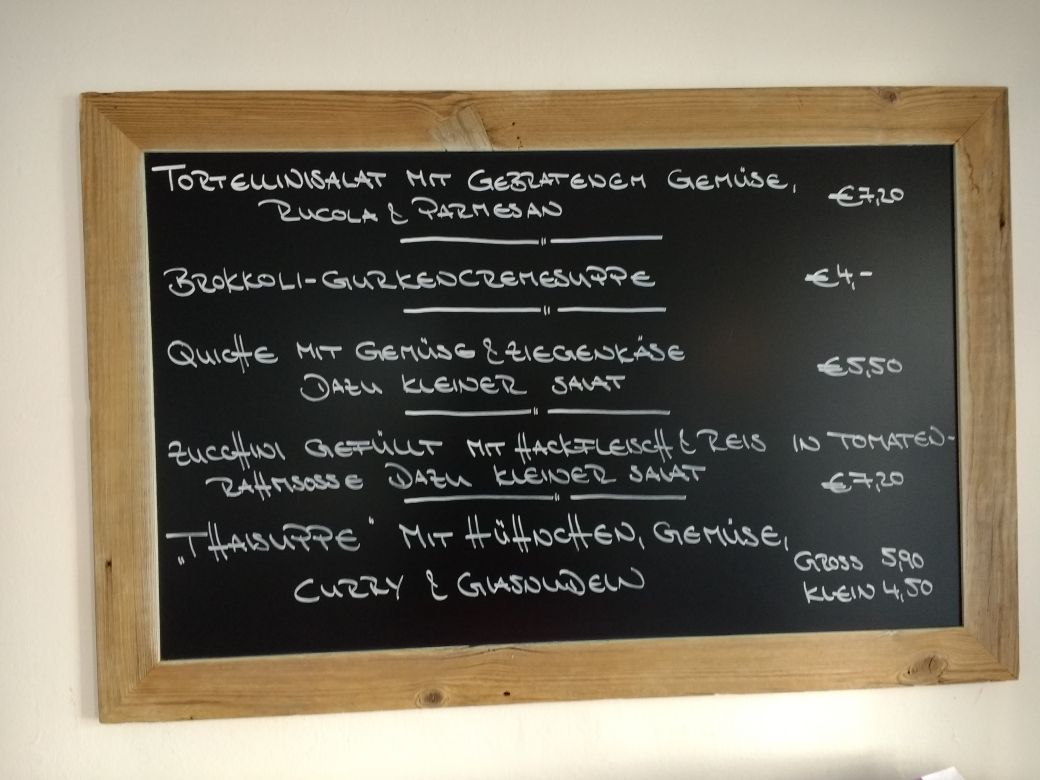 TORTELLINISALAT MIT GEBRATENEM GEMÜSE, €7,20
RUCOLA & PARMESAN
BROKKOLI-GURKENCREMESUPPE €4,-
QUICHE MIT GEMÜSE & ZIEGENKÄSE €5,50
DAZU KLEINER SALAT
ZUCCHINI GEFÜLLT MIT HACKFLEISCH & REIS IN TOMATEN-
RAHMSOSSE DAZU KLEINER SALAT €7,20
„THAISUPPE" MIT HÜHNCHEN, GEMÜSE,
GROSS 5,90
CURRY & GLASNUDELN KLEIN 4,50